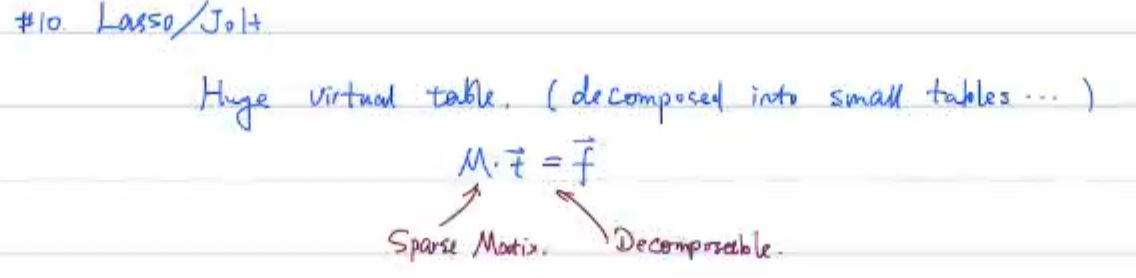 #10. Lasso/Jolt
Huge virtual table. (decomposed into small tables ... )
M·t⃗ = f⃗
Sparse Matix. Decomposable.